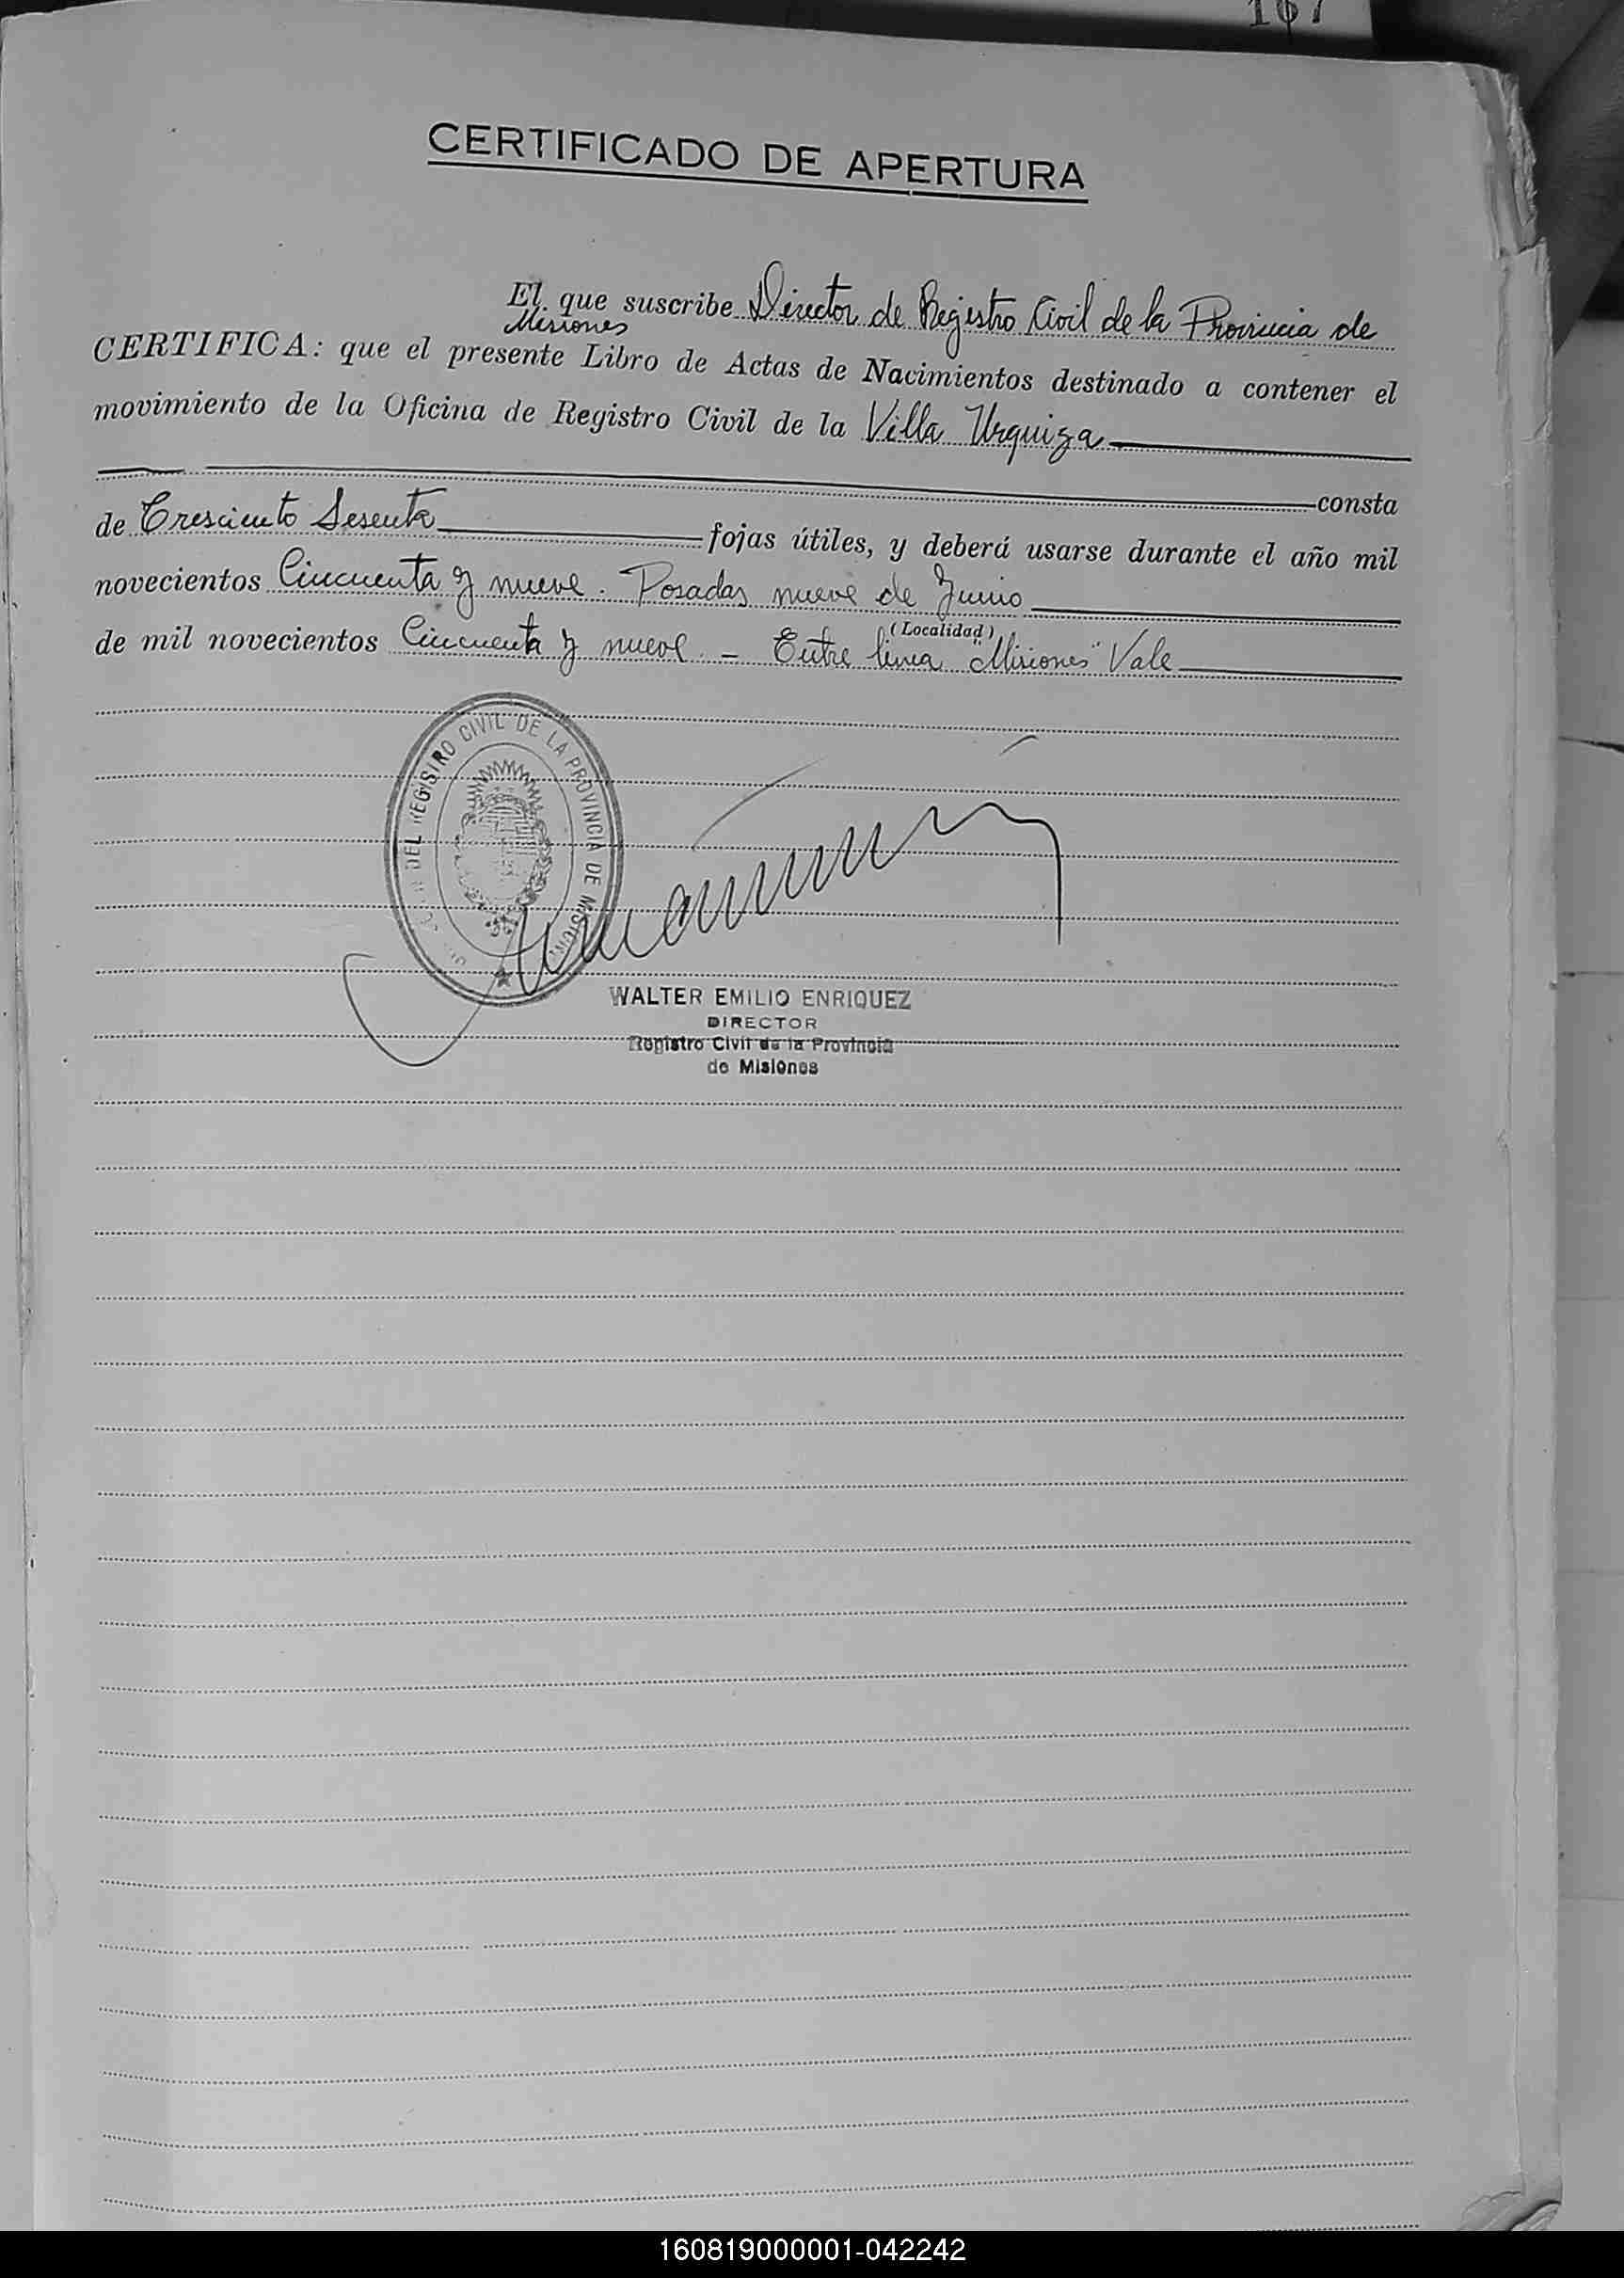 167
CERTIFICADO DE APERTURA
El que suscribe Director de Registro Civil de la Provincia de
Misiones
CERTIFICA: que el presente Libro de Actas de Nacimientos destinado a contener el
movimiento de la Oficina de Registro Civil de la Villa Urquiza
consta
de Tresciento Sesenta fojas útiles, y deberá usarse durante el año mil
novecientos Cincuenta y nueve. Posadas nueve de Junio
(Localidad)
de mil novecientos Cincuenta y nueve. – Entre linea "Misiones" Vale
DEL REGISTRO CIVIL DE LA PROVINCIA DE MISIONES
WALTER EMILIO ENRIQUEZ
DIRECTOR
Registro Civil de la Provincia
de Misiones
160819000001-042242